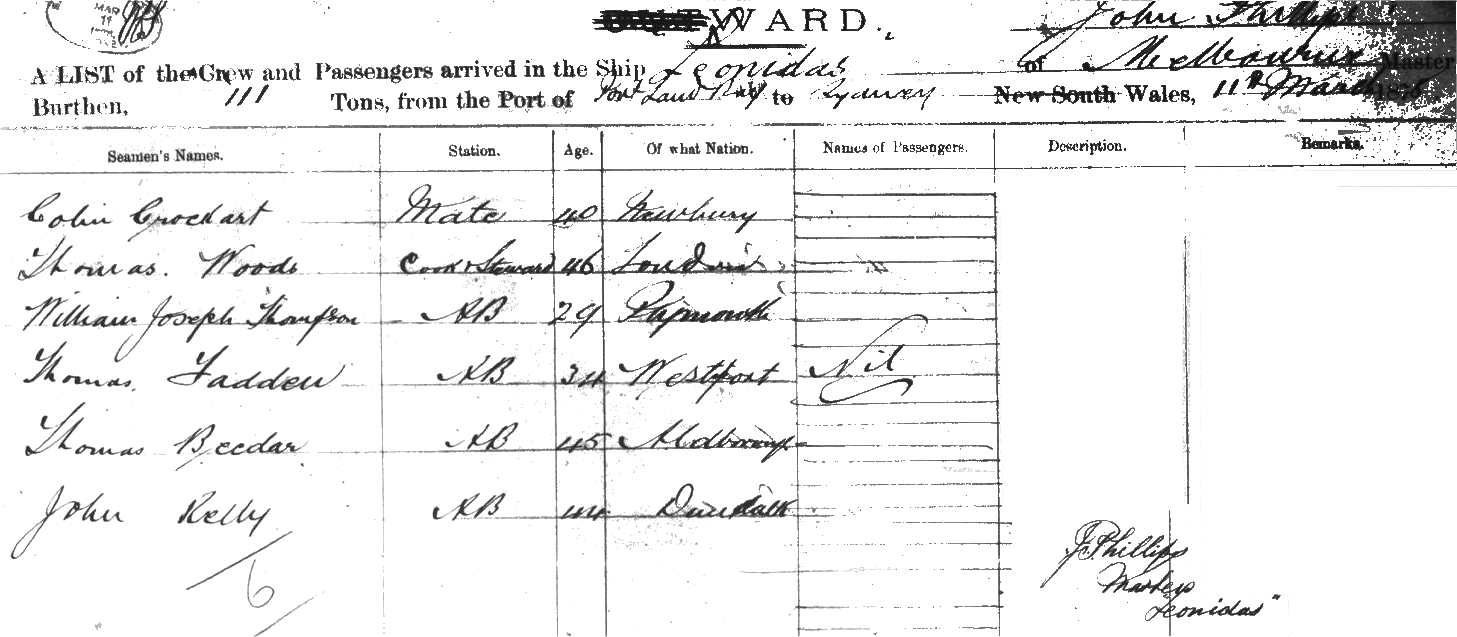 MAR
11
WARD.
John Phillips
A LIST of the Crew and Passengers arrived in the Ship Leonidas of Melbourne Master
Burthen, 111 Tons, from the Port of Port Land Bay to Sydney New South Wales, 11th March 187
Seamen's Names. Station. Age. Of what Nation. Names of Passengers. Description. Remarks.
Colin Crockart Mate 40 Newbury
Thomas. Woods Cook & Steward 46 London
William Joseph Thompson AB 29 Plymouth
Thomas. Fadden AB 34 Westport Nil
Thomas Beedar AB 45 Aldborough
John Kelly AB 44 Dundalk
6
J Phillips
Master
Leonidas"